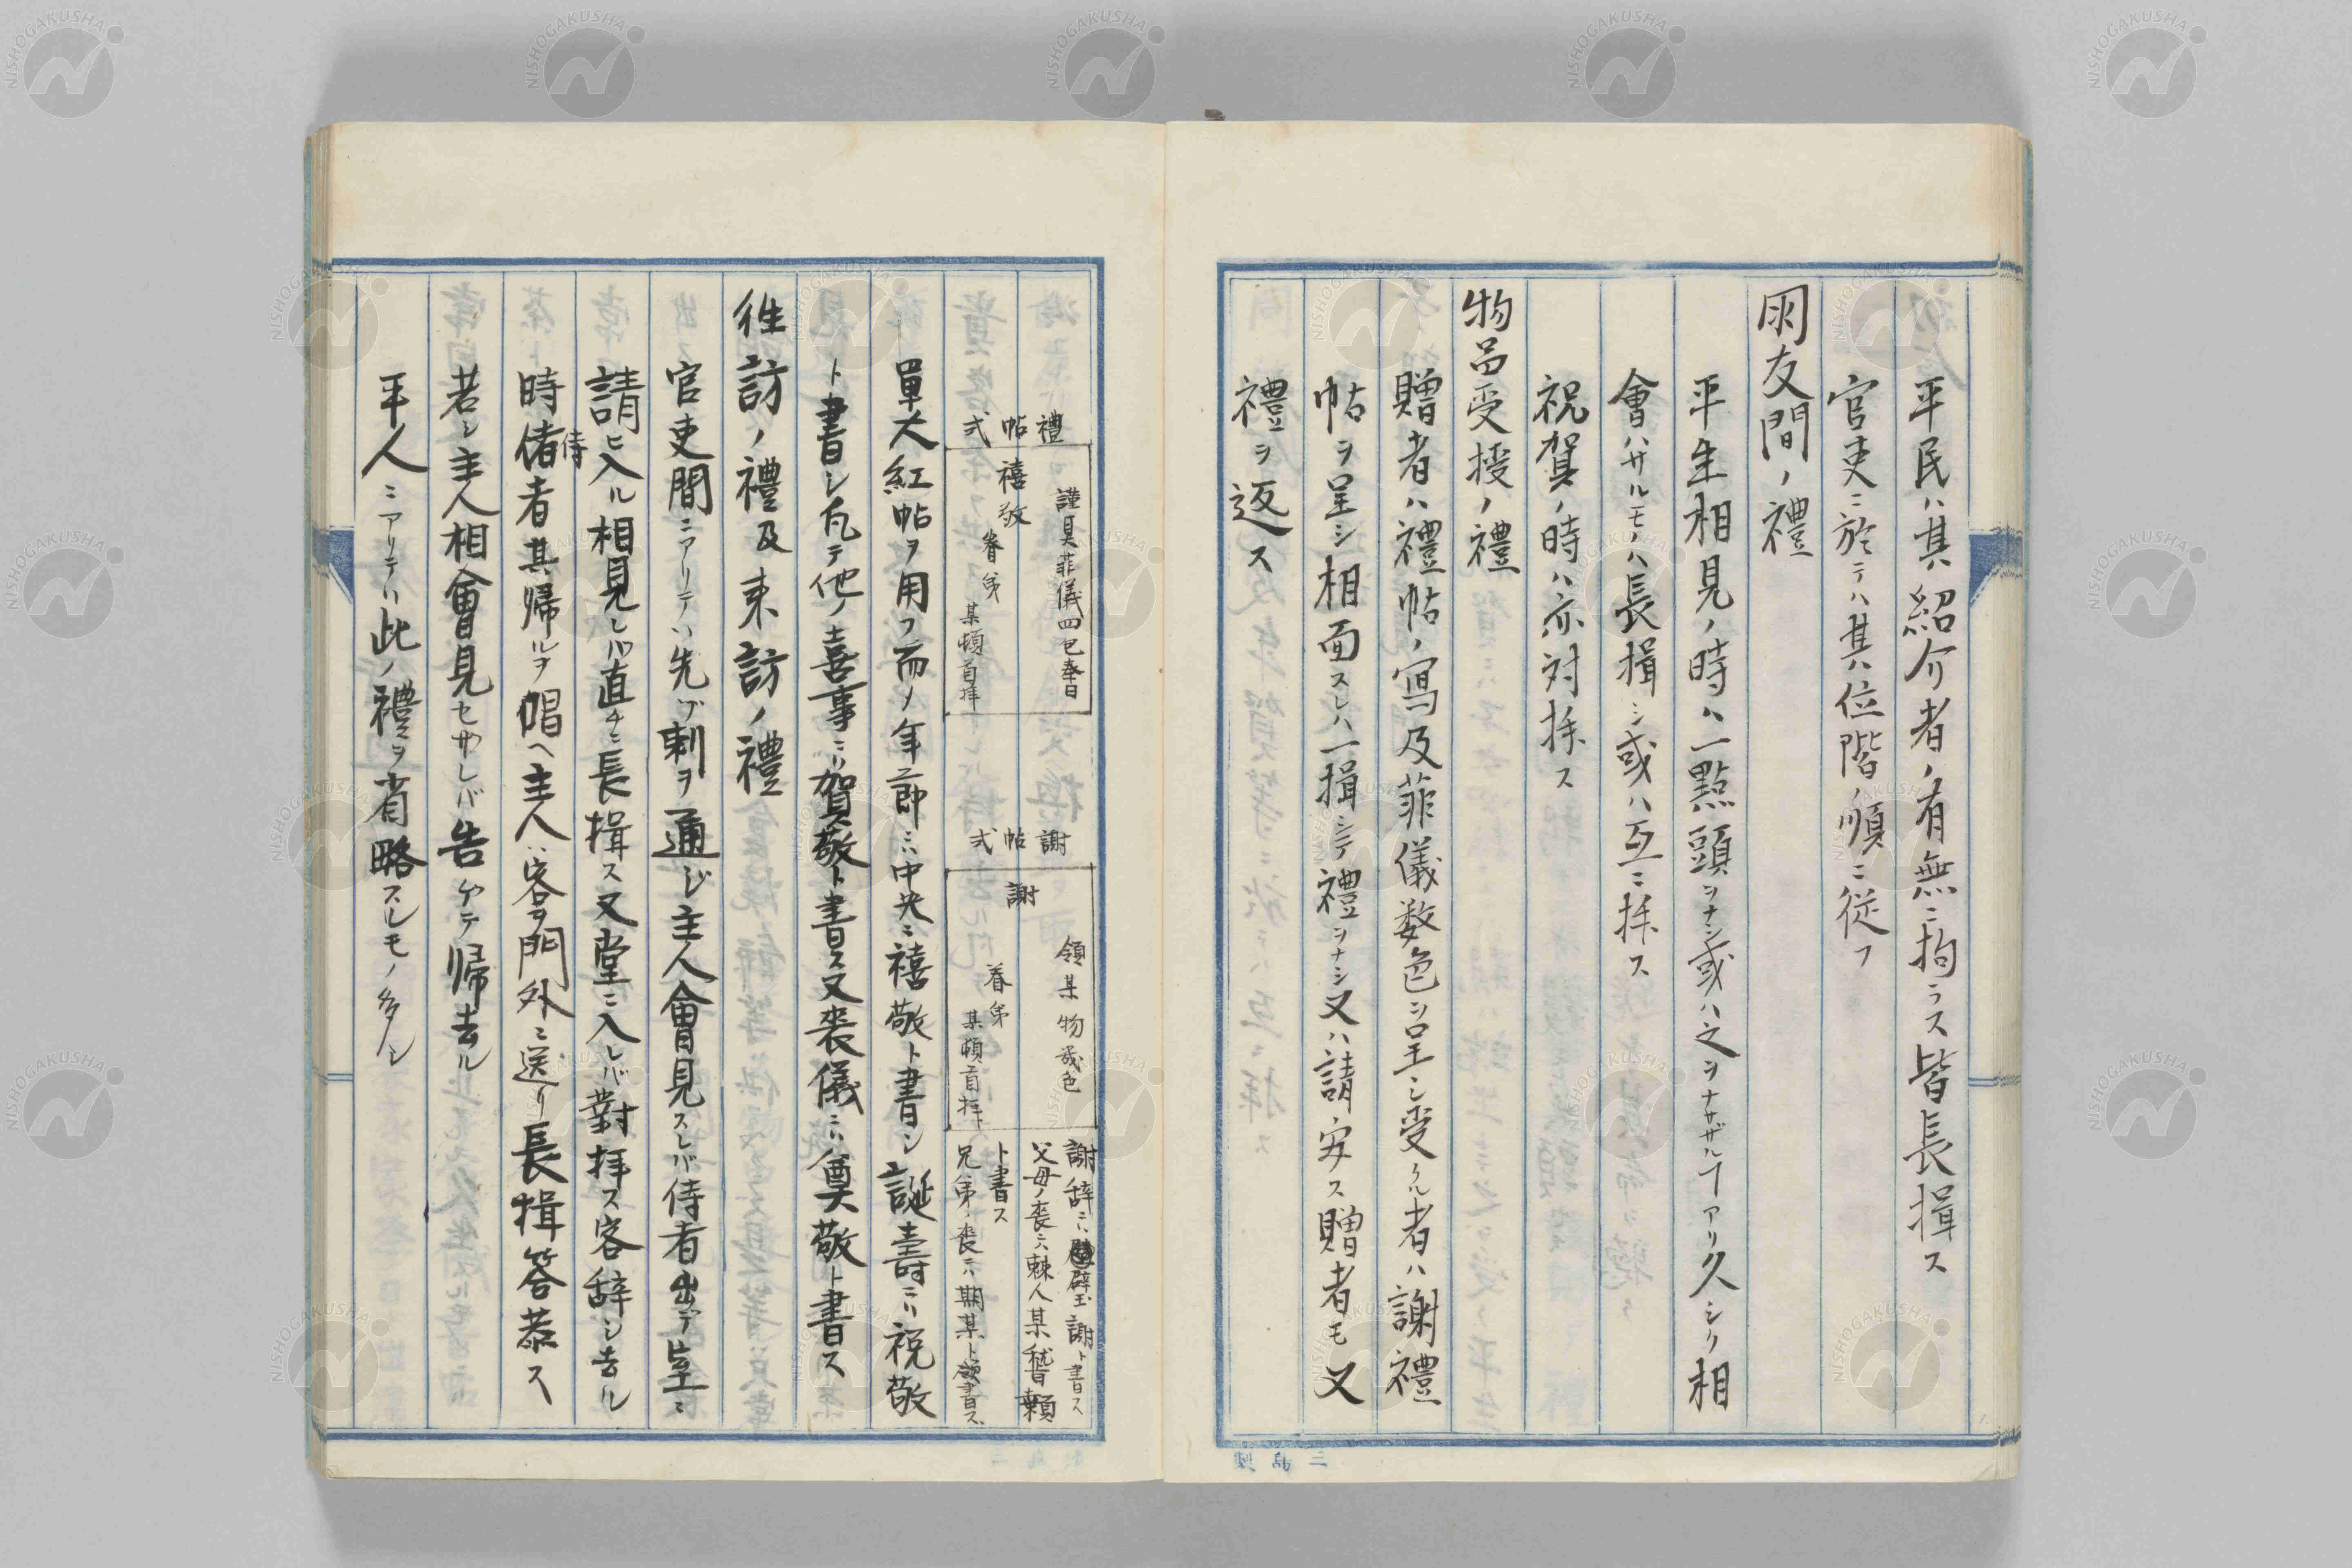 平民ハ其紹介者ノ有無ニ拘ラス皆長揖ス
官吏ニ於テハ其ハ位階ノ順ニ従フ
朋友間ノ禮
平生相見ノ時ハ一點頭ヲナシ或ハ之ヲナサザルヿアリ久シク相
會ハサルモノハ長揖シ或ハ互ニ拝ス
祝賀ノ時ハ亦対拝ス
物品受授ノ禮
贈者ハ禮帖ノ寫及菲儀数色ヲ呈シ受クル者ハ謝禮
帖ヲ呈シ相面スレハ一揖シテ禮ヲナシ又ハ請安ス贈者モ又
禮ヲ返ス
三品製
禮帖式
謹具菲儀四色奉申
禧敬
眷弟
某頓首拝
謝帖式
領某物幾色
謝
眷弟
某頓首拝
謝辞ニハ璧玉謝ト書ス
父母ノ喪ニハ棘人某稽顙
ト書ス
兄弟ノ喪ニハ期某ト書ス
單大紅帖ヲ用フ而ノ年節ニハ中央ニ禧敬ト書シ誕壽ニハ祝敬
ト書シ凡テ他ノ喜事ニハ賀敬ト書ス又喪儀ニハ奠敬ト書ス
往訪ノ禮及来訪ノ禮
官吏間ニアリテハ先ヅ刺ヲ通ジ主人會見スレバ侍者出デ堂ニ
請ヒ入ル相見レバ直チニ長揖ス又堂ニ入レバ對拝ス客辞シ去ル
時侍者其帰ルヲ唱ヘ主人ハ客ヲ門外ニ送リ長揖答恭ス
若シ主人相會見セサレバ告ケテ帰去ル
平人ニアリテハ此ノ禮ヲ省略スレモノ多シ
NISHOGAKUSHA